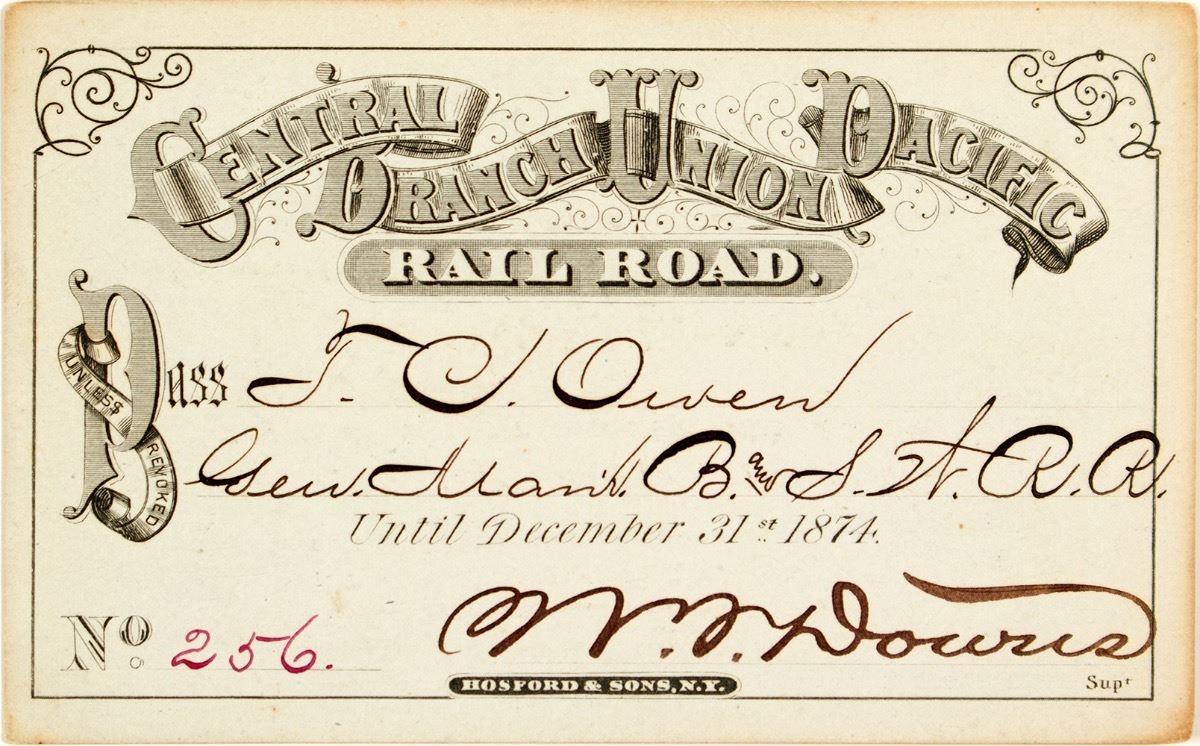 CENTRAL BRANCH UNION PACIFIC
RAIL ROAD.
Pass T. C. Owen
UNLESS REVOKED
Genl. Man'r. B. and S. W. R. R.
Until December 31st 1874.
No. 256.
W. F. Downs
Supt
HOSFORD & SONS, N.Y.